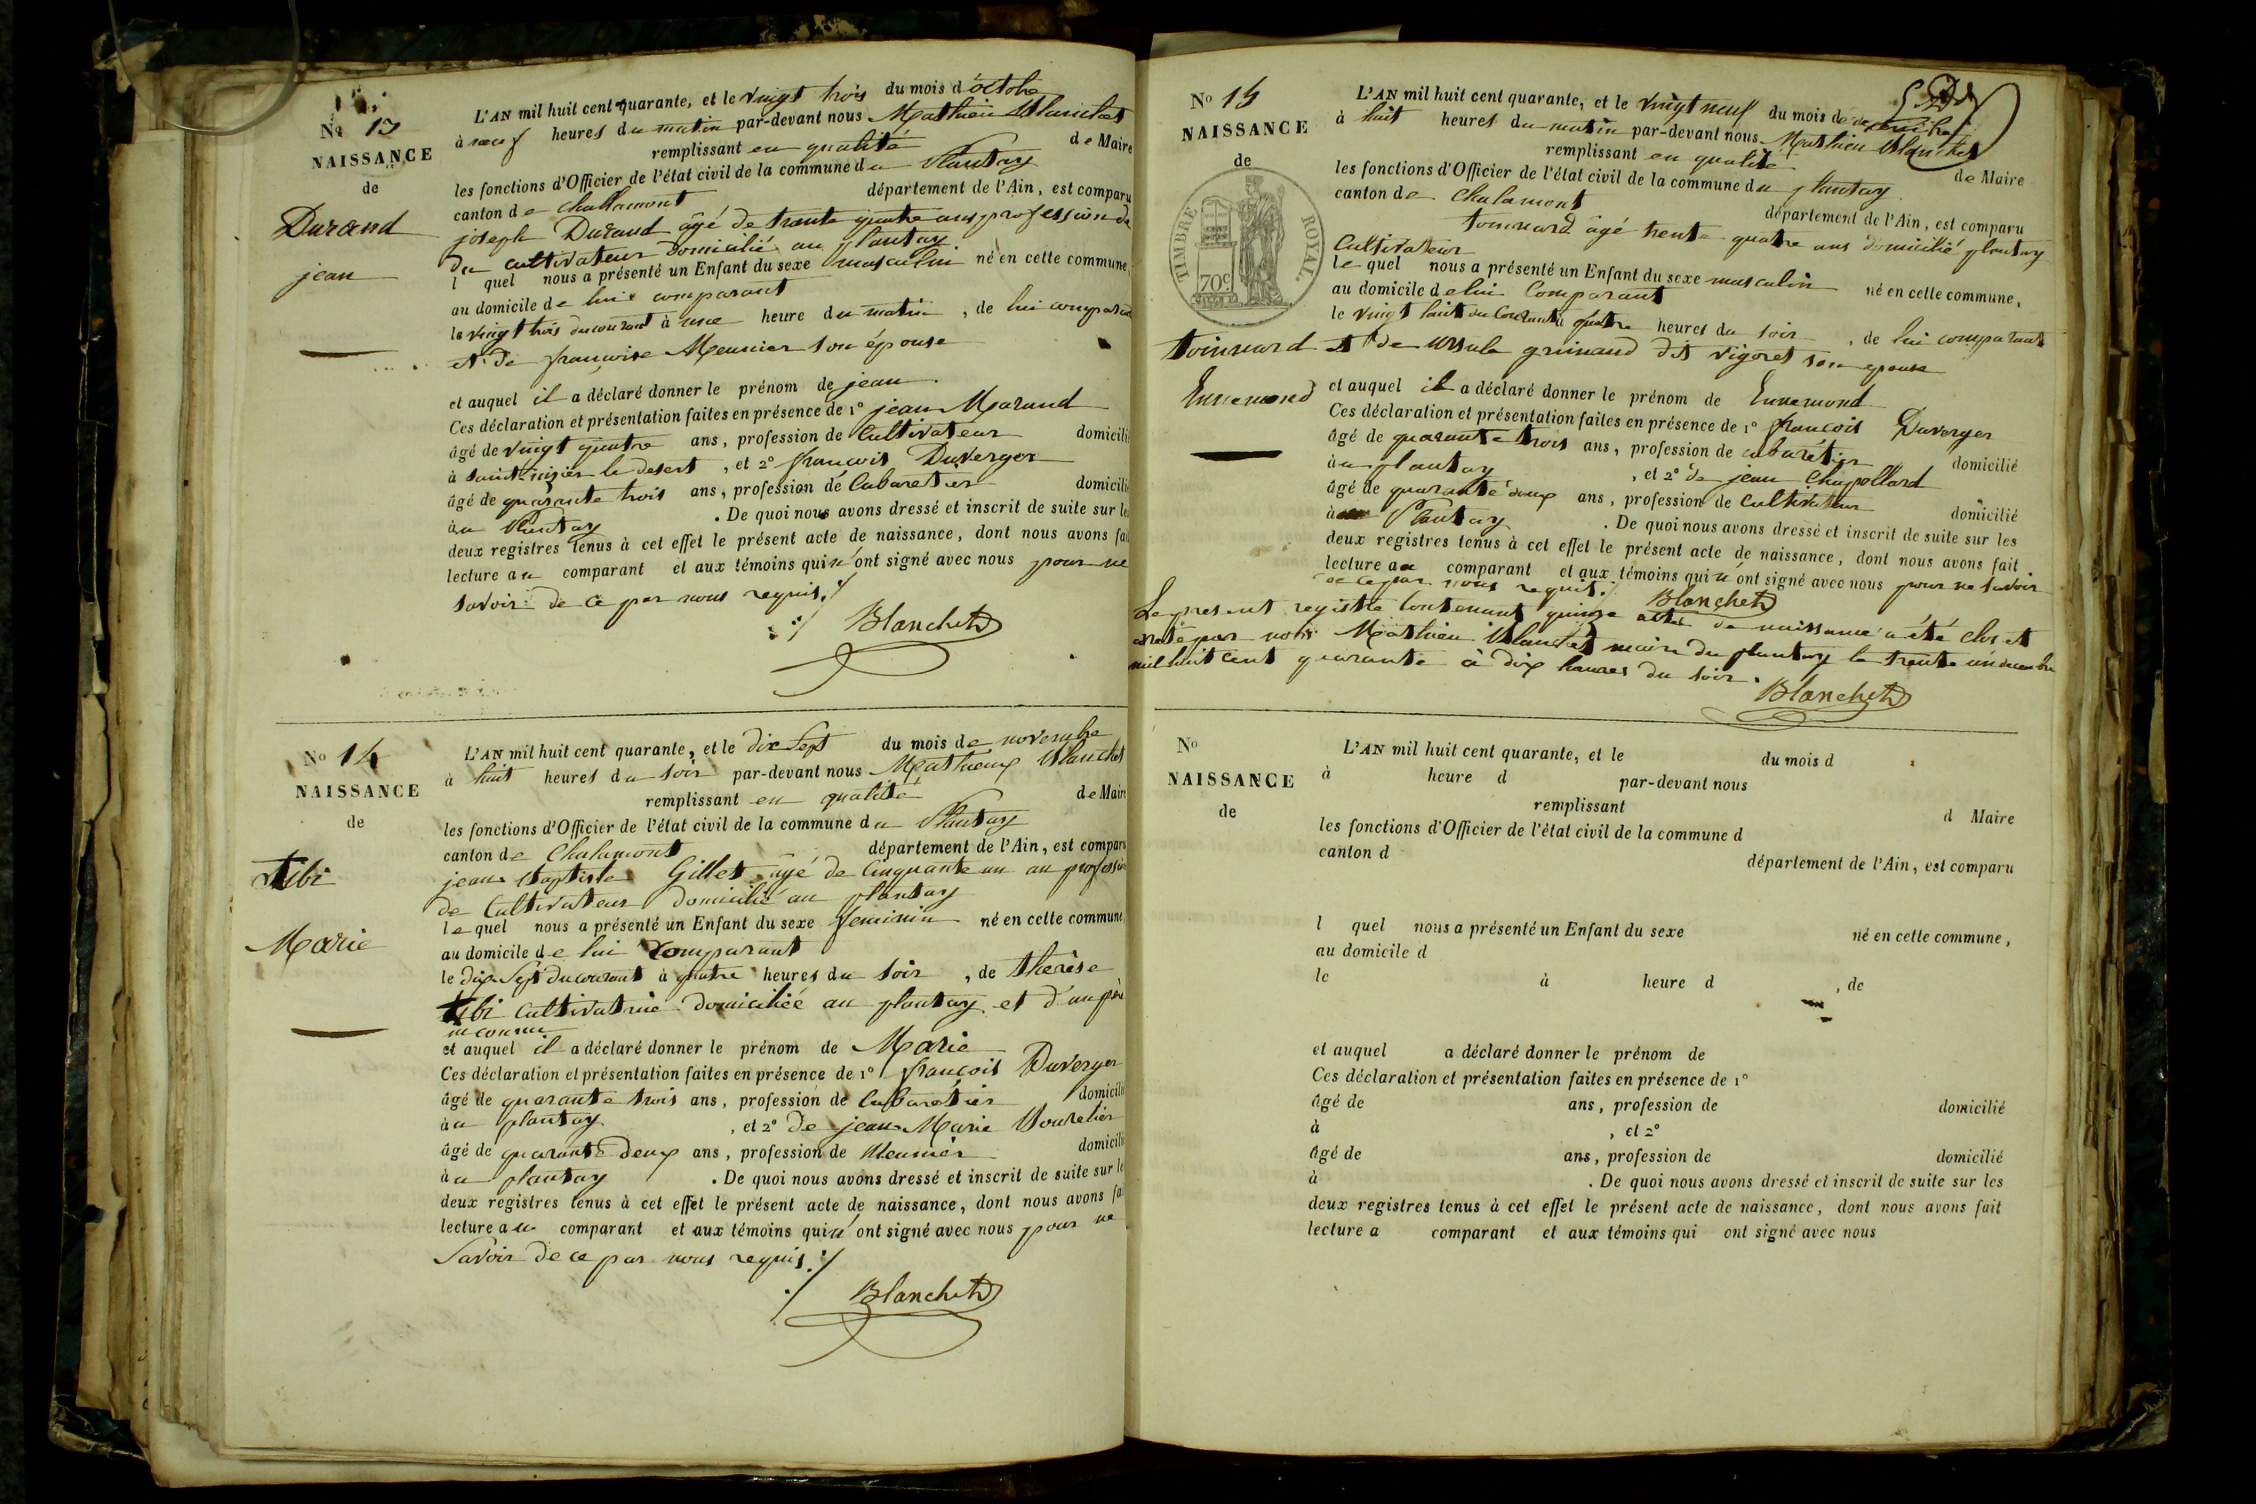 No 13
NAISSANCE
de
Durand
jean
L'AN mil huit cent quarante, et le vingt trois du mois d'octobre
à neuf heures du matin par-devant nous Mathieu Blanchet
remplissant en qualité de Maire
les fonctions d'Officier de l'état civil de la commune du Plantay
canton de Challamont département de l'Ain, est comparu
joseph Durand âgé de trente quatre ans profession de
du cultivateur domicilié au plantay
l quel nous a présenté un Enfant du sexe masculin né en cette commune,
au domicile de lui comparant
le vingt trois du courant à une heure du matin, de lui comparant
et de françoise Meunier son épouse
et auquel il a déclaré donner le prénom de jean
Ces déclaration et présentation faites en présence de 1º jean Marand
âgé de vingt quatre ans, profession de Cultivateur domicilié
à saint nizier le desert, et 2º françois Duverger
âgé de quarante trois ans, profession de Cabaretier domicilié
à u Plantay. De quoi nous avons dressé et inscrit de suite sur les
deux registres tenus à cet effet le présent acte de naissance, dont nous avons fait
lecture au comparant et aux témoins qui n'ont signé avec nous pour ne
savoir de ce par nous requis ./
./ Blanchet
No 14
NAISSANCE
de
Tibi
Marie
L'AN mil huit cent quarante, et le dix Sept du mois de novembre
à huit heures du soir par-devant nous Mathieux Blanchet
remplissant en qualité de Maire
les fonctions d'Officier de l'état civil de la commune du Plantay
canton de Chalamont département de l'Ain, est comparu
jean Baptiste Gillet âgé de Cinquante un an profession
de Cultivateur domicilié au plantay
le quel nous a présenté un Enfant du sexe feminin né en cette commune,
au domicile de lui Comparant
le dix Sept du courant à quatre heures du soir, de thérèse
tibi Cultivatrice domiciliée au plantay et d'un père
inconnu
et auquel il a déclaré donner le prénom de Marie
Ces déclaration et présentation faites en présence de 1º françois Duverger
âgé de quarante trois ans, profession de Cabaretier domicilié
à u plantay, et 2º de jean Marie Bourelier
âgé de quarante deux ans, profession de Meunier domicilié
à u plantay. De quoi nous avons dressé et inscrit de suite sur les
deux registres tenus à cet effet le présent acte de naissance, dont nous avons fait
lecture au comparant et aux témoins qui n'ont signé avec nous pour ne
Savoir de ce par nous requis ./
./ Blanchet
No 15
NAISSANCE
de
TIMBRE ROYAL
70c
toinnard
Ennemond
L'AN mil huit cent quarante, et le vingt neuf du mois de decembre
à huit heures du matin par-devant nous Mathieu Blanchet
remplissant en qualité de Maire
les fonctions d'Officier de l'état civil de la commune du plantay
canton de Chalamont département de l'Ain, est comparu
toinnard âgé trente quatre ans domicilié plantay
Cultivateur
le quel nous a présenté un Enfant du sexe masculin né en cette commune,
au domicile de lui Comparant
le vingt huit du Courant à quatre heures du soir, de lui comparant
et de ursule grinand dit vigoret son epouse
et auquel il a déclaré donner le prénom de Ennemond
Ces déclaration et présentation faites en présence de 1º françois Duverger
âgé de quarante trois ans, profession de cabarétier domicilié
à u plantay, et 2º de jean Chapollard
âgé de quarante deux ans, profession de Cultivateur domicilié
à Plantay. De quoi nous avons dressé et inscrit de suite sur les
deux registres tenus à cet effet le présent acte de naissance, dont nous avons fait
lecture au comparant et aux témoins qui n'ont signé avec nous pour ne savoir
de ce par nous requis ./ Blanchet
Le present registre Contenant quinze actes de naissance a été clos et
areté par nous Mathieu Blanchet maire du plantay le trente un decembre
mil huit cent quarante à dix heures du soir.
Blanchet
No
NAISSANCE
de
L'AN mil huit cent quarante, et le du mois d
à heure d par-devant nous
remplissant d Maire
les fonctions d'Officier de l'état civil de la commune d
canton d département de l'Ain, est comparu
l quel nous a présenté un Enfant du sexe né en cette commune,
au domicile d
le à heure d, de
et auquel a déclaré donner le prénom de
Ces déclaration et présentation faites en présence de 1º
âgé de ans, profession de domicilié
à, et 2º
âgé de ans, profession de domicilié
à. De quoi nous avons dressé et inscrit de suite sur les
deux registres tenus à cet effet le présent acte de naissance, dont nous avons fait
lecture a comparant et aux témoins qui ont signé avec nous